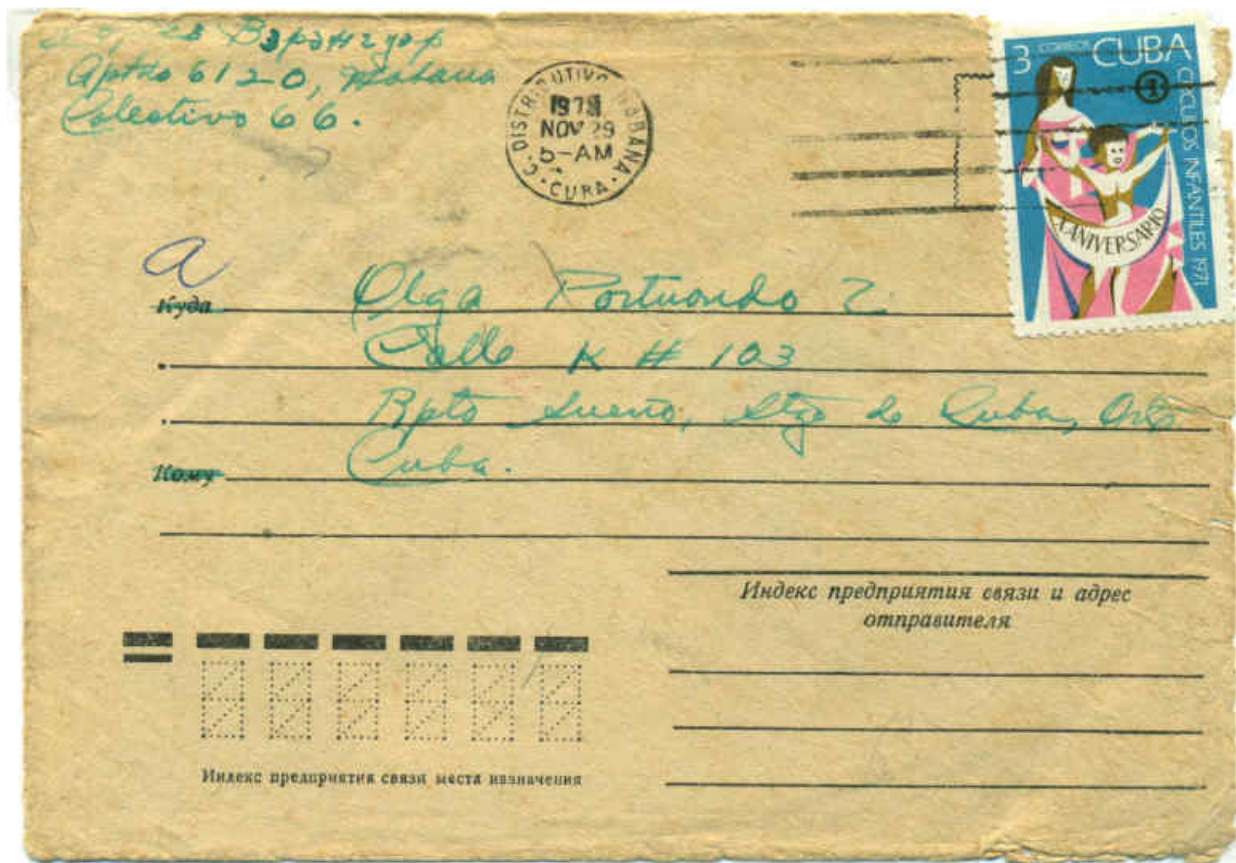 Aptdo 6120, Habana
Colectivo 66.
C. DISTRIBUTIVO HABANA
NOV 29
5-AM
CUBA
3 CORREOS CUBA
CIRCULOS INFANTILES 1971
X ANIVERSARIO
a
Куда Olga Portuondo Z
Calle K # 103
Rpto Sueño, Stgo de Cuba, Ote
Кому Cuba.
Индекс предприятия связи и адрес
отправителя
Индекс предприятия связи места назначения